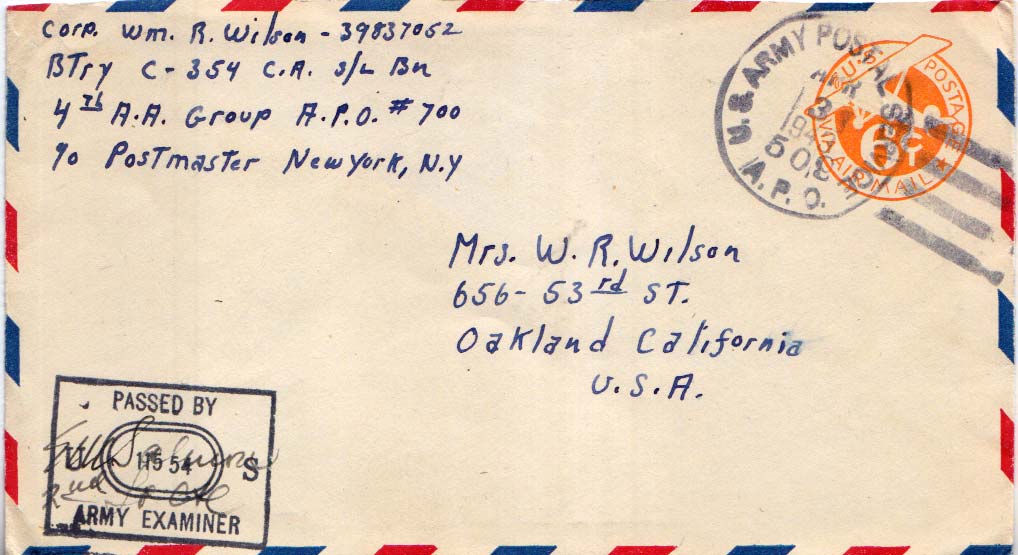 Corp. Wm. R. Wilson - 39837052
BTry C-354 C.A. S/L Bn
4th A.A. Group A.P.O. # 700
% Postmaster New York, N.Y
U.S. ARMY POSTAL
A.P.O.
U.S. POSTAGE
6¢
VIA AIR MAIL
Mrs. W. R. Wilson
656-53rd ST.
Oakland California
U.S.A.
PASSED BY
U 11554 S
2nd Lt CAC
ARMY EXAMINER